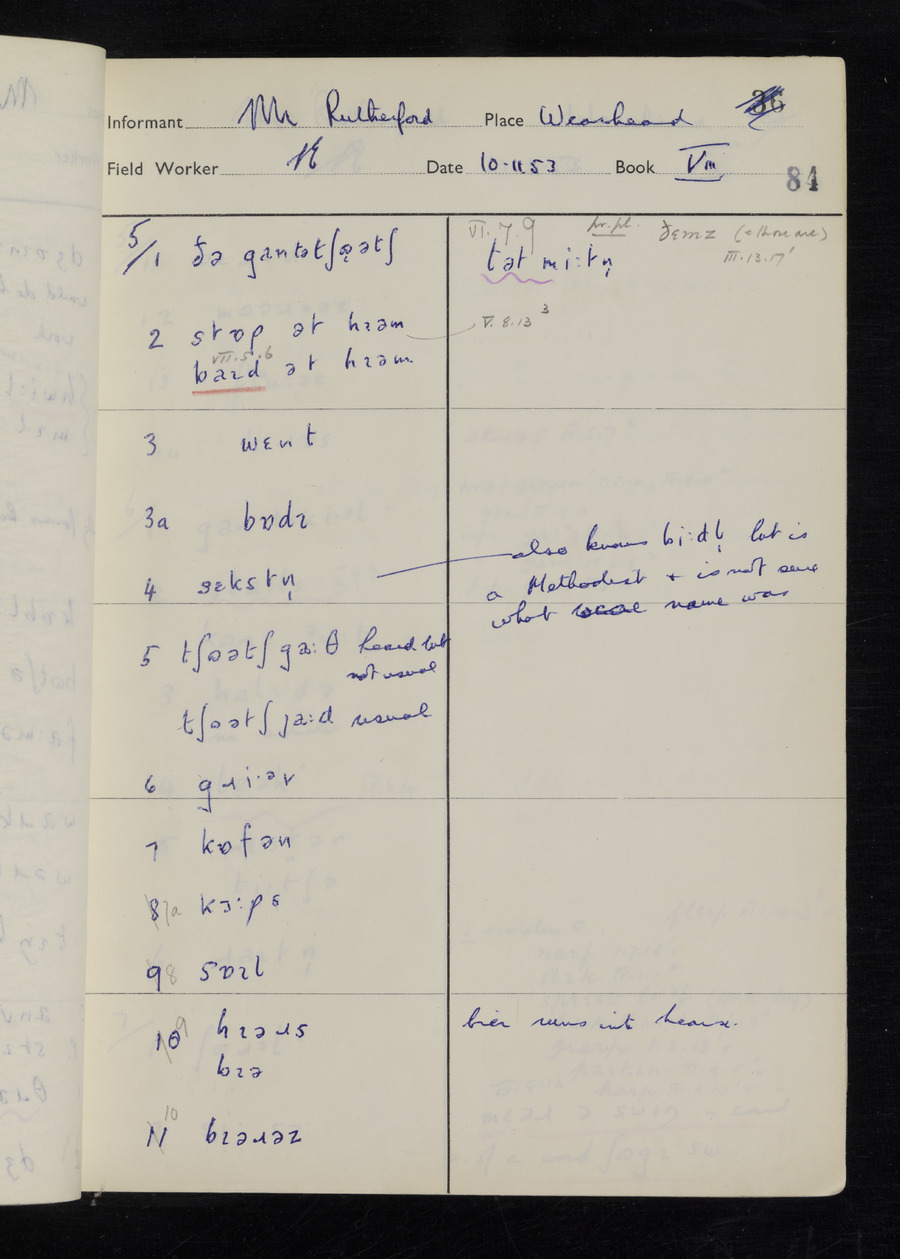 Informant Mr Rutherford Place Wearhead 36
Field Worker Date 10.11.53 Book VIII
84
5/1 ðə ganːtətʃɒətʃ
VI.7.9 pr.pl. ðɛmz (= those are)
tət miːtn̩ III.13.17'
2 stɒp ət hɪəm V.8.13 3
VII.5.6
baɪd ət hɪəm
3 wɛnt
3a bɒdɪ
4 sɛkstn̩
also knows biːdl̩ but is
a Methodist + is not sure
what local name was
5 tʃɒətʃ gaːθ heard but
not usual
tʃɒətʃ jaːd usual
6 gɹiˑəv
7 kɒfən
8 7a kɔːps
9 8 sɒɪl
10 9 hɪəɹs
bɪə
bier runs into hearse.
11 10 bɪəɹəz